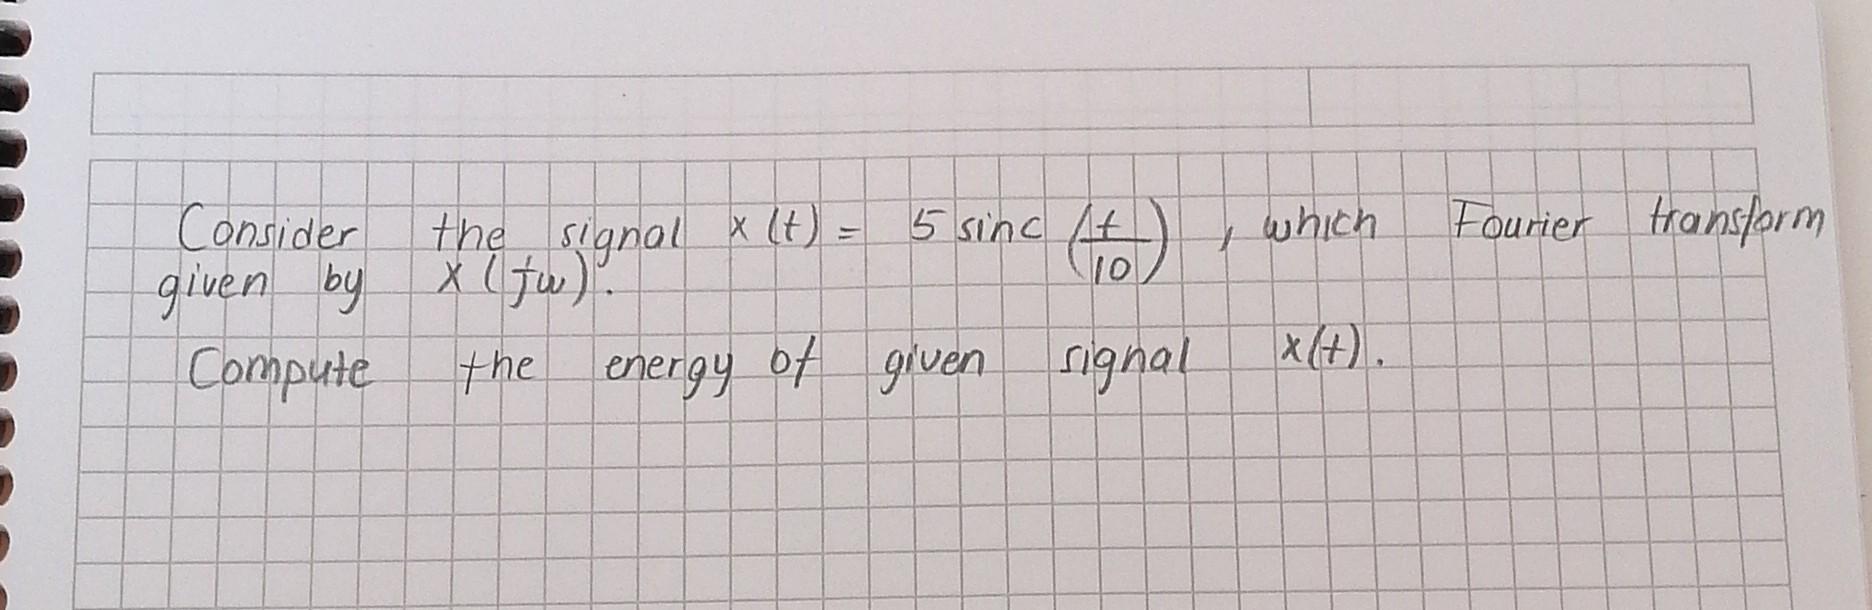 Consider the signal x(t) = 5 sinc (t/10), which Fourier transform
given by X(jw).
Compute the energy of given signal x(t).